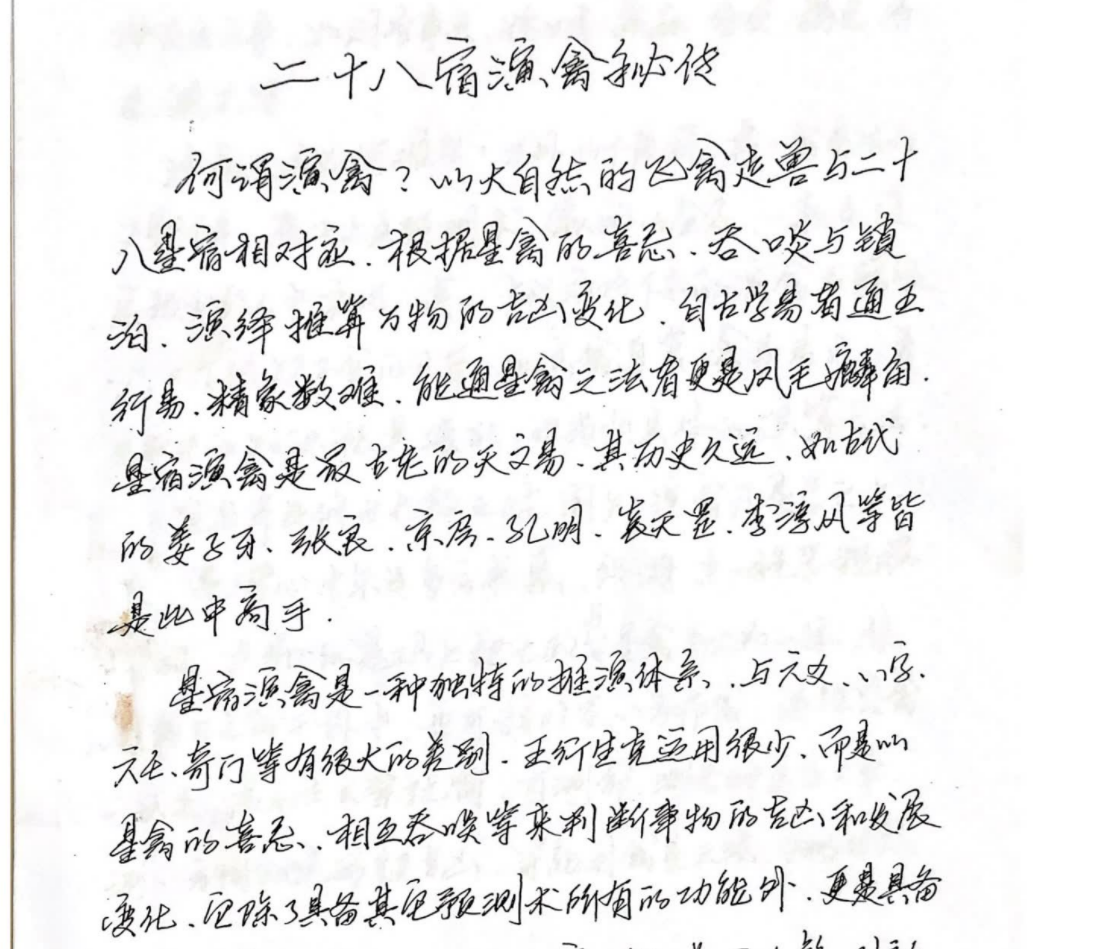 二十八宿演禽秘传
何谓演禽?以大自然的飞禽走兽与二十
八星宿相对应、根据星禽的喜忌、吞啖与锁
泊、演绎推算万物的吉凶变化、自古学易者通五
行易、精象数难、能通星禽之法者更是凤毛麟角.
星宿演禽是最古老的天文易、其历史久远、如古代
的姜子牙、张良、京房、孔明、袁天罡、李淳风等皆
是此中高手.
星宿演禽是一种独特的推演体系、与六爻、八字、
六壬、奇门等有很大的差别、五行生克运用很少、而是以
星禽的喜忌、相互吞啖等来判断事物的吉凶和发展
变化、它除了具备其它预测术所有的功能外、更是具备